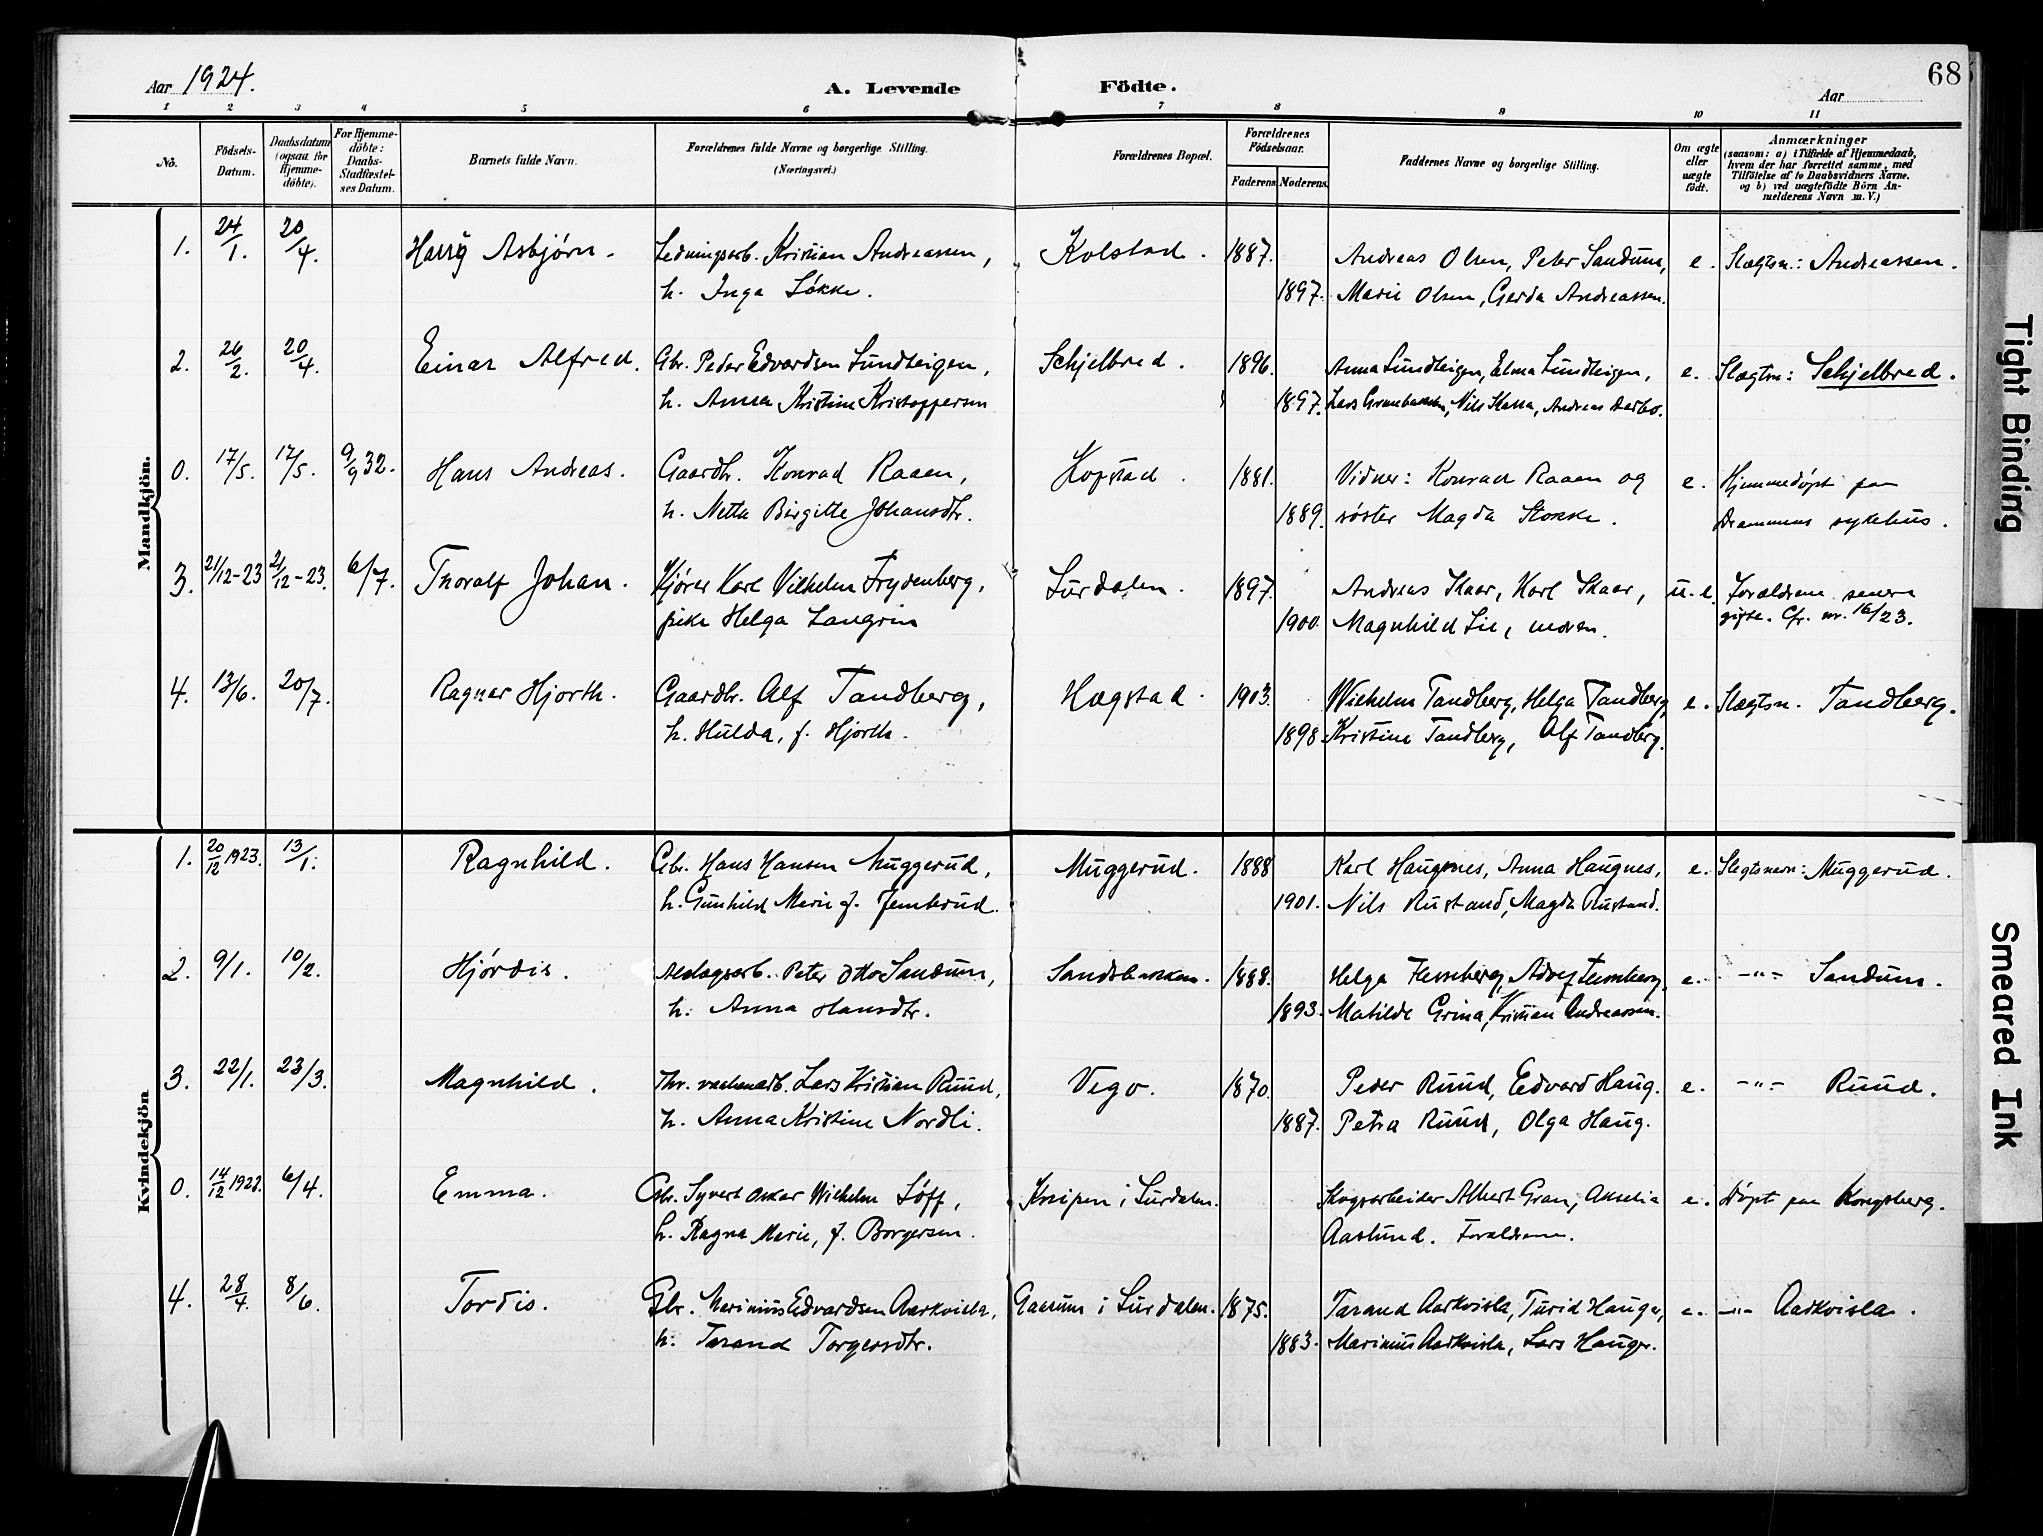 Aar 1924. A. Levende Födte. Aar 68
1 2 3 4 5 6 7 8 9 10 11
No. Födsels-Datum. Daabsdatum (ogsaa for Hjemme-døbte). For Hjemme-døbte: Daabs-Stadfæstel-ses Datum. Barnets fulde Navn. Forældrenes fulde Navne og borgerlige Stilling. (Næringsvei.) Forældrenes Bopæl. Forældrenes Födselsaar. Faderens Moderens. Faddernes Navne og borgerlige Stilling. Om ægte eller uægte födt. Anmærkninger
(saasom: a) i Tilfælde af Hjemmedaab,
hvem der har forrettet samme, med
Tilföielse af to Daabsvidners Navne.
og b) ved uægtefödte Börn An-
melderens Navn m. V.)
Mandkjön.
1. 24/1. 20/4. Harry Asbjørn. Ledningsarb. Kristian Andreassen, Kolstad. 1887. Andreas Olsen, Peter Sandum, e. Slægtsn.: Andreassen.
h. Inga Løkke. 1897. Marie Olsen, Gerda Andreassen.
2. 26/2. 20/4. Einar Alfred. Gbr. Peder Edvardsen Lundteigen, Schjelbred. 1896. Anna Lundteigen, Elma Lundteigen, e. Slægtsn: Schjelbred.
h. Anna Kristine Kristoffersen 1897. Lars Nils Skarra, Andreas
0. 17/5. 17/5. 9/9 32. Hans Andreas. Gaardbr. Konrad Raaen, Hopstad. 1881. Vidner: Konrad Raaen og e. Hjemmedøpt paa
h. Netta Birgitte Johansdtr. 1889. søster Magda Stokke. Drammens sykehus.
3. 21/12-23 21/12-23. 6/7. Thoralf Johan. Kjører Karl Vilhelm Frydenberg, Lurdalen. 1897. Andreas Skaar, Karl Skaar, u.e. Forældrene senere
pike Helga Langrin 1900. Magnhild Lie, moren. gifte. Cfr. nr. 16/23.
4. 13/6. 20/7. Ragnar Hjorth. Gaardbr. Alf Tandberg, Hægstad. 1903. Wilhelm Tandberg, Helga Tandberg, e. Slægtsn. Tandberg.
h. Hulda, f. Hjorth. 1898. Kristine Tandberg, Alf Tandberg.
Kvindekjön
1. 20/12 1923. 13/1. Ragnhild. Gbr. Hans Hansen Muggerud, Muggerud. 1888 Karl Haugnes, Anna Haugnes, e. Slegtsnavn: Muggerud.
h. Gunhild Marie f. Jemterud. 1901. Nils Rustand, Magda Rustand.
2. 9/1. 10/2. Hjørdis. Anlægsarb. Peter Otto Sandum, Sandsbakken. 1888. Helga Flesseberg, Adolf Flesseberg, e. -"- Sandum.
h. Anna Hansdtr. 1893. Matilde Grina, Kristian Andreassen.
3. 22/1. 23/3. Magnhild. Thv. Lars Kristian Ruud, Vego. 1870. Peder Ruud, Edvard Haug. e. -"- Ruud.
h. Anna Kristine Nordli. 1887. Petra Ruud, Olga Haug.
0. 14/12 1923. 6/4. Emma. Gbr. Syvert Oskar Wilhelm Løff, Knipen i Lurdalen. Skogsarbeider Albert Gran, Akselia e. Døpt paa Kongsberg.
h. Ragna Marie, f. Borgersen. Aaslund. Forældrene.
4. 28/4. 8/6. Tordis. Gbr. Marinius Edvardsen Aarkvisla, Gaarum i Lurdalen. 1875. Tarand Aarkvisla, Turid Hauger, e. -"- Aarkvisla.
h. Tarand Torgersdtr. 1883. Marinius Aarkvisla, Lars Hauger.
Tight Binding
Smeared Ink